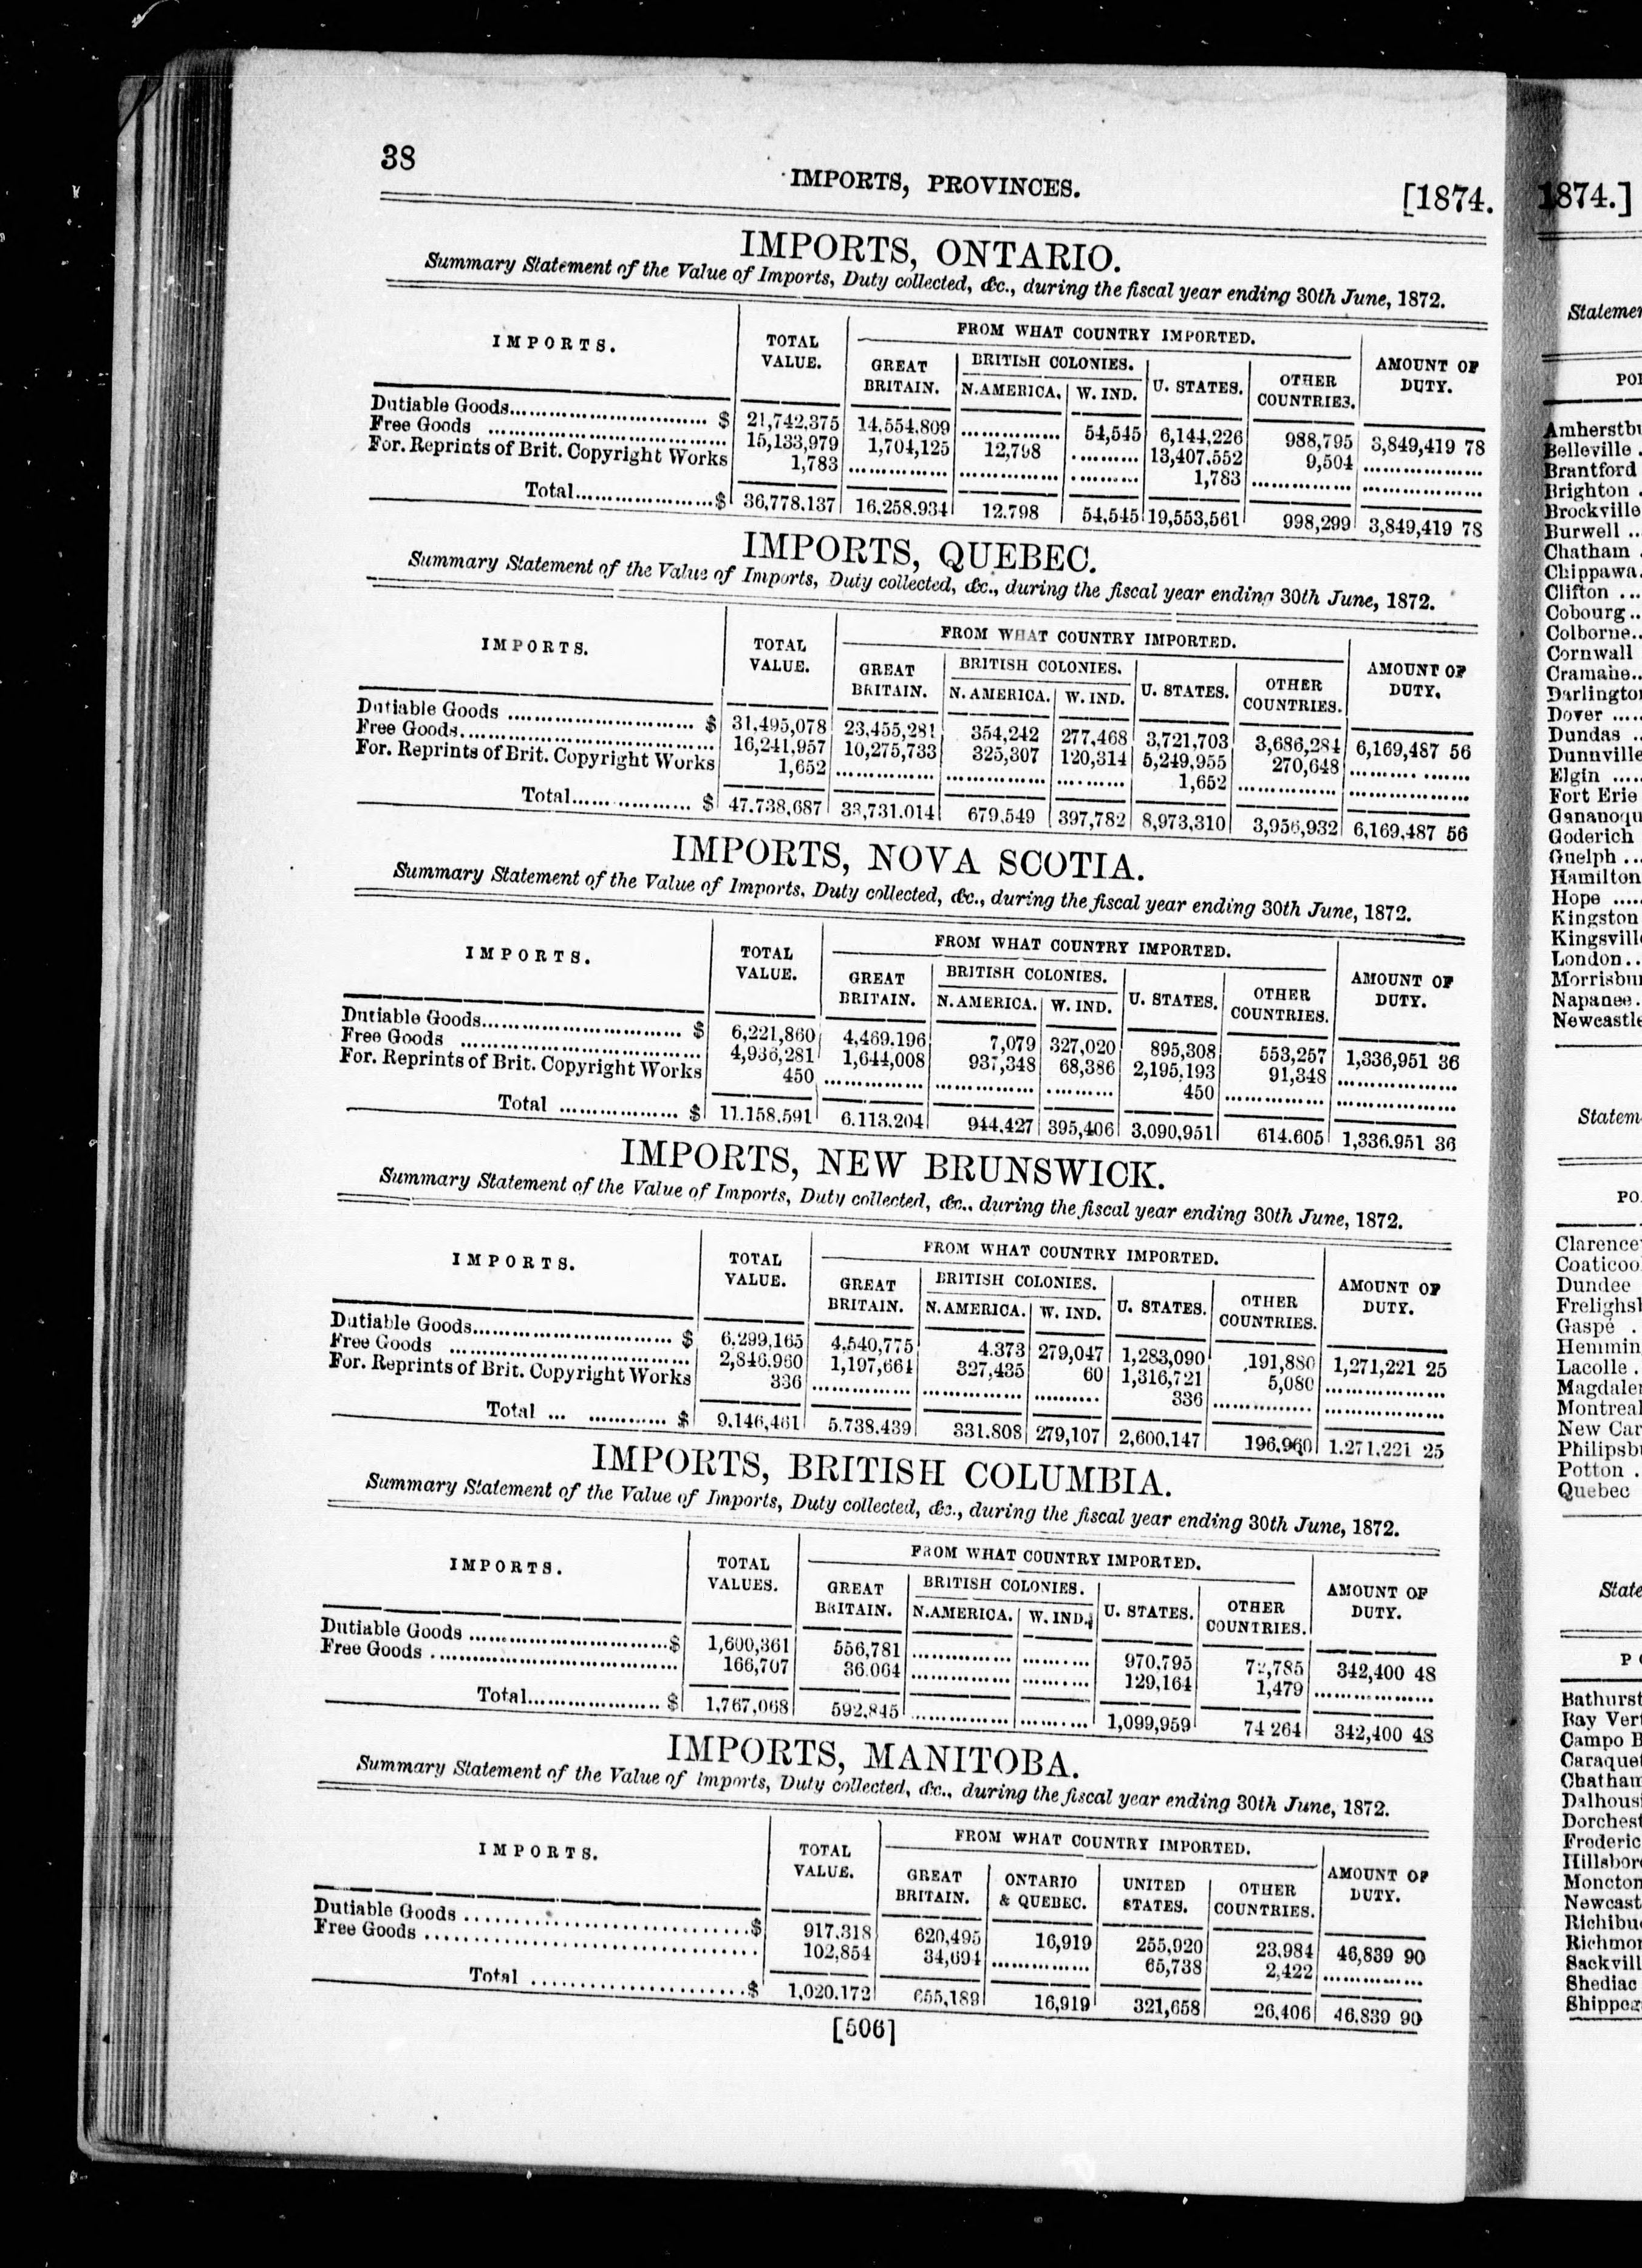 38
IMPORTS, PROVINCES.
[1874.
IMPORTS, ONTARIO.
Summary Statement of the Value of Imports, Duty collected, &c., during the fiscal year ending 30th June, 1872.
IMPORTS. TOTAL VALUE. FROM WHAT COUNTRY IMPORTED. AMOUNT OF DUTY.
GREAT BRITAIN. BRITISH COLONIES. U. STATES. OTHER COUNTRIES.
N. AMERICA. W. IND.
Dutiable Goods.............................. $ 21,742,375 14,554,809 ............... 54,545 6,144,226 988,795 3,849,419 78
Free Goods .................................... 15,133,979 1,704,125 12,798 .......... 13,407,552 9,504 ..................
For. Reprints of Brit. Copyright Works 1,783 ............... ............... .......... 1,783 ............... ..................
Total.....................$ 36,778,137 16,258,934 12,798 54,545 19,553,561 998,299 3,849,419 78
IMPORTS, QUEBEC.
Summary Statement of the Value of Imports, Duty collected, &c., during the fiscal year ending 30th June, 1872.
IMPORTS. TOTAL VALUE. FROM WHAT COUNTRY IMPORTED. AMOUNT OF DUTY.
GREAT BRITAIN. BRITISH COLONIES. U. STATES. OTHER COUNTRIES.
N. AMERICA. W. IND.
Dutiable Goods ............................ $ 31,495,078 23,455,281 354,242 277,468 3,721,703 3,686,284 6,169,487 56
Free Goods....................................... 16,241,957 10,275,733 325,307 120,314 5,249,955 270,648 .......... .......
For. Reprints of Brit. Copyright Works 1,652 ............... ............... .......... 1,652 ............... ..................
Total...... ............ $ 47,738,687 33,731,014 679,549 397,782 8,973,310 3,956,932 6,169,487 56
IMPORTS, NOVA SCOTIA.
Summary Statement of the Value of Imports, Duty collected, &c., during the fiscal year ending 30th June, 1872.
IMPORTS. TOTAL VALUE. FROM WHAT COUNTRY IMPORTED. AMOUNT OF DUTY.
GREAT BRITAIN. BRITISH COLONIES. U. STATES. OTHER COUNTRIES.
N. AMERICA. W. IND.
Dutiable Goods.............................. $ 6,221,860 4,469,196 7,079 327,020 895,308 553,257 1,336,951 36
Free Goods .................................... 4,936,281 1,644,008 937,348 68,386 2,195,193 91,348 ..................
For. Reprints of Brit. Copyright Works 450 ............... ............... .......... 450 ............... ..................
Total .................. $ 11,158,591 6,113,204 944,427 395,406 3,090,951 614,605 1,336,951 36
IMPORTS, NEW BRUNSWICK.
Summary Statement of the Value of Imports, Duty collected, &c., during the fiscal year ending 30th June, 1872.
IMPORTS. TOTAL VALUE. FROM WHAT COUNTRY IMPORTED. AMOUNT OF DUTY.
GREAT BRITAIN. BRITISH COLONIES. U. STATES. OTHER COUNTRIES.
N. AMERICA. W. IND.
Dutiable Goods.............................. $ 6,299,165 4,540,775 4,373 279,047 1,283,090 191,880 1,271,221 25
Free Goods .................................... 2,846,960 1,197,664 327,435 60 1,316,721 5,080 ..................
For. Reprints of Brit. Copyright Works 336 ............... ............... .......... 336 ............... ..................
Total ... ............ $ 9,146,461 5,738,439 331,808 279,107 2,600,147 196,960 1,271,221 25
IMPORTS, BRITISH COLUMBIA.
Summary Statement of the Value of Imports, Duty collected, &c., during the fiscal year ending 30th June, 1872.
IMPORTS. TOTAL VALUES. FROM WHAT COUNTRY IMPORTED. AMOUNT OF DUTY.
GREAT BRITAIN. BRITISH COLONIES. U. STATES. OTHER COUNTRIES.
N. AMERICA. W. IND.
Dutiable Goods ..............................$ 1,600,361 556,781 ............... .......... 970,795 72,785 342,400 48
Free Goods ..................................... 166,707 36,064 ............... .......... 129,164 1,479 ..................
Total.................... $ 1,767,068 592,845 ............... .......... 1,099,959 74 264 342,400 48
IMPORTS, MANITOBA.
Summary Statement of the Value of Imports, Duty collected, &c., during the fiscal year ending 30th June, 1872.
IMPORTS. TOTAL VALUE. FROM WHAT COUNTRY IMPORTED. AMOUNT OF DUTY.
GREAT BRITAIN. ONTARIO & QUEBEC. UNITED STATES. OTHER COUNTRIES.
Dutiable Goods ..............................$ 917,318 620,495 16,919 255,920 23,984 46,839 90
Free Goods .................................... 102,854 34,694 ............... 65,738 2,422 ...............
Total .......................$ 1,020,172 655,189 16,919 321,658 26,406 46,839 90
[506]
1874.]
Statemen
POI
Amherstbu
Belleville .
Brantford
Brighton .
Brockville
Burwell ..
Chatham .
Chippawa.
Clifton ...
Cobourg..
Colborne..
Cornwall
Cramahe..
Darlington
Dover .....
Dundas ..
Dunnville
Elgin .....
Fort Erie
Gananoqu
Goderich
Guelph ...
Hamilton
Hope .....
Kingston
Kingsville
London..
Morrisbur
Napanee.
Newcastle
Statem
PO
Clarence
Coaticoo
Dundee
Frelighsl
Gaspé .
Hemmin
Lacolle .
Magdalen
Montreal
New Car
Philipsbu
Potton .
Quebec
State
P O
Bathurst
Bay Vert
Campo B
Caraquet
Chatham
Dalhousi
Dorchest
Frederic
Hillsboro
Moncton
Newcast
Richibuc
Richmon
Sackvill
Shediac
Shippeg